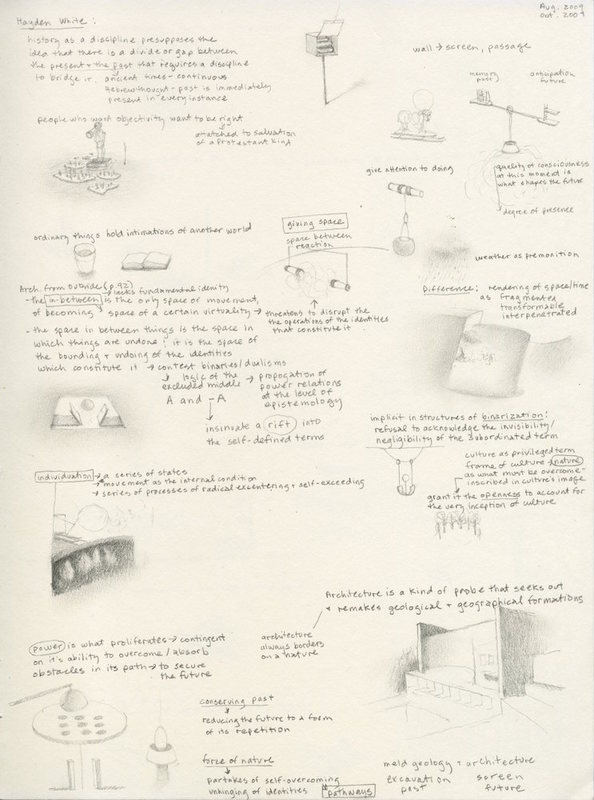 Aug. 2009
Oct. 2009
Hayden White:
history as a discipline presupposes the
idea that there is a divide or gap between
the present + the past that requires a discipline
to bridge it. ancient times - continuous
Hebrew thought - past is immediately
present in every instance
people who want objectivity want to be right
attatched to salvation
of a Protestant kind
wall → screen, passage
memory
past
anticipation
future
give attention to doing
quality of consciousness
at this moment is
what shapes the future
degree of presence
ordinary things hold intimations of another world
giving space
space between
reaction
weather as premonition
Arch. from Outside (p. 92)
lacks fundamental identity
- the in-between is the only space of movement,
of becoming space of a certain virtuality → threatens to disrupt the
the operations of the identities
that constitute it
- the space in between things is the space in
which things are undone; it is the space of
the bounding + undoing of the identities
which constitute it → contest binaries/dualisms
logic of the
excluded middle → propogation of
power relations
at the level of
epistemology
A and -A
insinuate a rift into
the self-defined terms
Difference: rendering of space/time
as fragmented
transformable
interpenetrated
implicit in structures of binarization:
refusal to acknowledge the invisibility/
negligibility of the subordinated term
culture as privileged term
frame of culture nature
as what must be overcome -
inscribed in culture's image
grant it the openness to account for
the very inception of culture
individuation → a series of states
→ movement as the internal condition
→ series of processes of radical excentering + self-exceeding
Architecture is a kind of probe that seeks out
+ remakes geological + geographical formations
architecture
always borders
on a nature
power is what proliferates → contingent
on it's ability to overcome/absorb
obstacles in its path → to secure
the future
conserving past
reducing the future to a form
of its repetition
force of nature
partakes of self-overcoming
unhinging of identities pathways
meld geology + architecture
excavation screen
past future